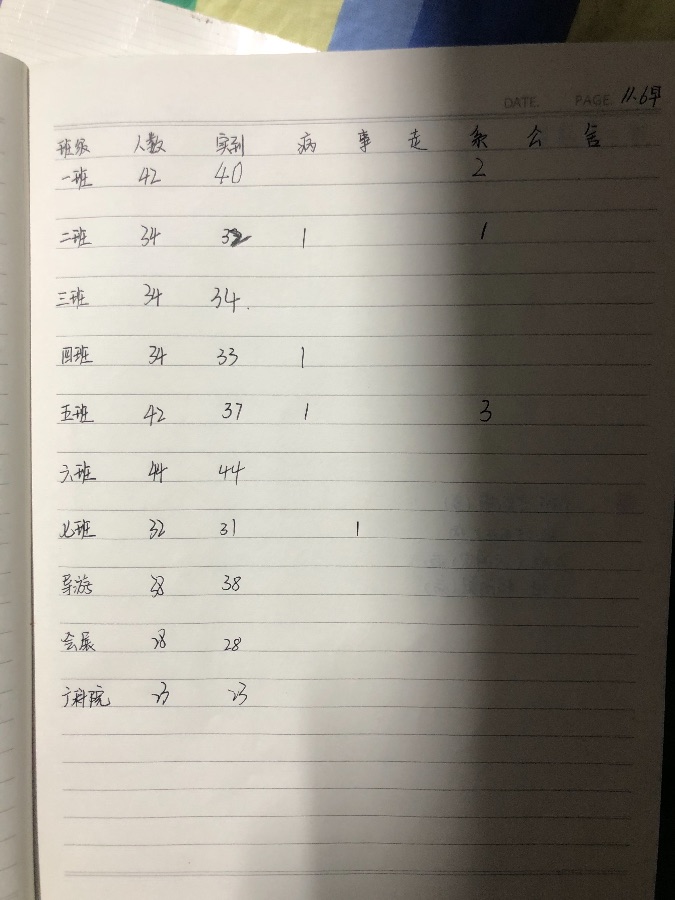 DATE. PAGE. 11.6早
班级 人数 实到 病 事 走 条 公 舍
一班 42 40 2
二班 34 32 1 1
三班 34 34.
四班 34 33 1
五班 42 37 1 3
六班 44 44
七班 32 31 1
导游 38 38
会展 28 28
广科院 23 23